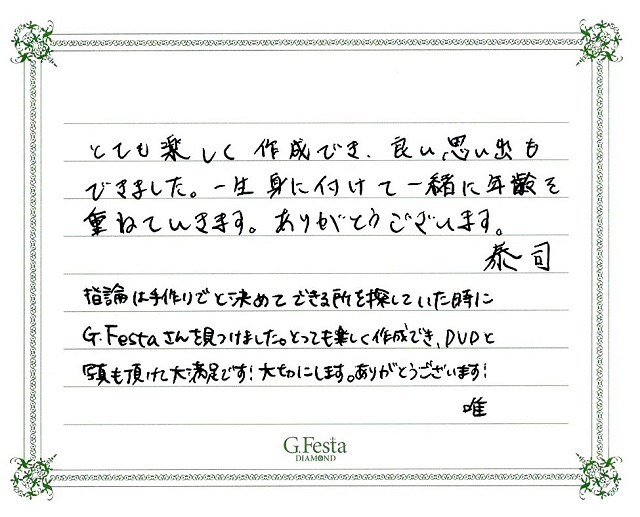 とても楽しく作成でき、良い思い出も
できました。一生身に付けて一緒に年齢を
重ねていきます。ありがとうございます。
泰司
指論は手作りでと決めてできる所を探していた時に
G.Festaさんを見つけました。とっても楽しく作成でき、DVDと
写真も頂けて大満足です!大切にします。ありがとうございます!
唯
G.Festa
DIAMOND